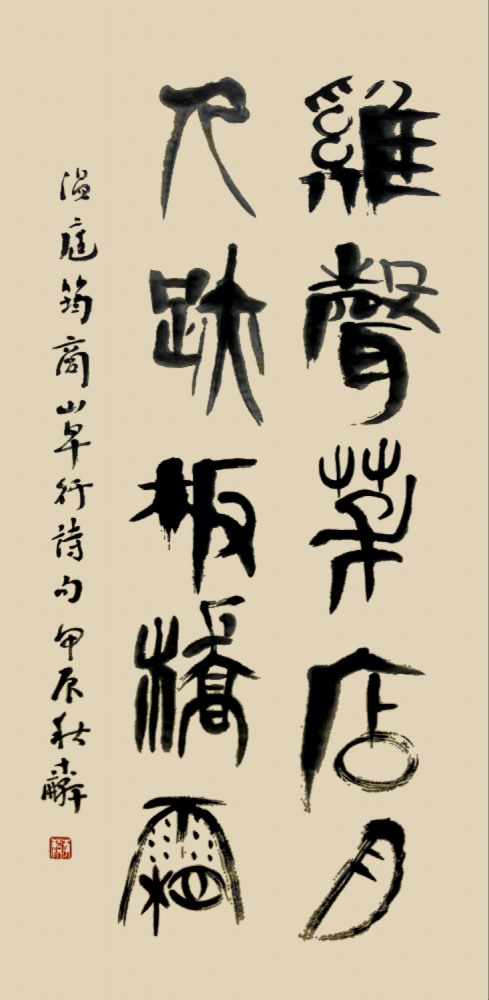 雞聲茅店月
人跡板橋霜
温庭筠商山早行詩句甲辰秋